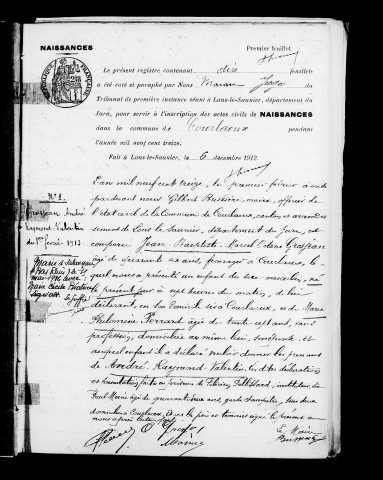 NAISSANCES
Premier feuillet.
RÉPUBLIQUE FRANÇAISE
Le présent registre contenant dix feuillets
a été coté et paraphé par Nous Juge du
Tribunal de première instance séant à Lons-le-Saunier, département du
Jura, pour servir à l'inscription des actes civils de NAISSANCES
dans la commune de Courlaoux pendant
l'année mil neuf cent treize.
Fait à Lons-le-Saunier, le 6 décembre 1912.
N° 1.
Grosjean André
Raymond-Valentin
du 1er février 1913
Marié à
mai 1946 avec
Marie Cécile
L'an mil neuf cent treize, le premier février à midi
pardevant nous Gilbert Bussière, maire, officier de
l'état civil de la Commune de Courlaoux, canton et arrondisse
ment de Lons-le-Saunier, département du Jura, est
comparu Jean Baptiste Marcel Grosjean
âgé de quarante six ans, fromager à Courlaoux, le
quel nous a présenté un enfant du sexe masculin, né
le présent jour à sept heures du matin, de lui
déclarant, en son domicile sis à Courlaoux, et de Marie
Philomène Perrard âgée de trente sept ans, sans
profession, domiciliée au même lieu, son épouse et
auquel enfant il a déclaré vouloir donner les prénoms
de André, Raymond-Valentin. Les dites déclarations
et présentation faites en présence de instituteur, et
Paul Marie âgé de quarante ans, garde champêtre, tous deux
domiciliés à Courlaoux, et ont le père et témoins signé le présent acte
nous après lecture faite.
Le Maire
Bussière